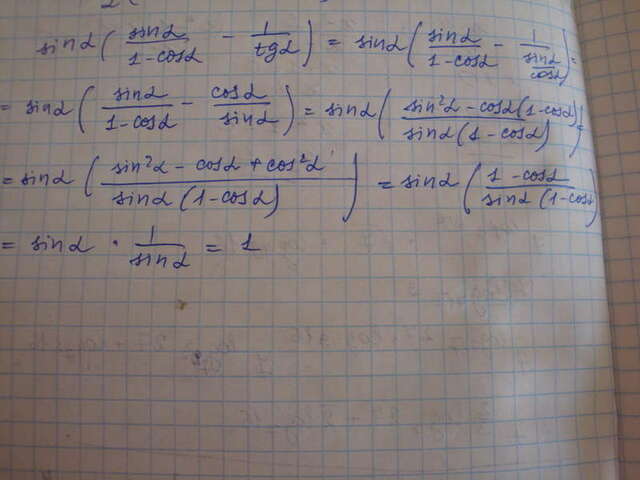 sin α ( sin α / (1 - cos α) - 1 / tg α ) = sin α ( sin α / (1 - cos α) - 1 / (sin α / cos α) ) =
= sin α ( sin α / (1 - cos α) - cos α / sin α ) = sin α ( (sin² α - cos α (1 - cos α)) / (sin α (1 - cos α)) ) =
= sin α ( (sin² α - cos α + cos² α) / (sin α (1 - cos α)) ) = sin α ( (1 - cos α) / (sin α (1 - cos α)) )
= sin α · 1 / sin α = 1